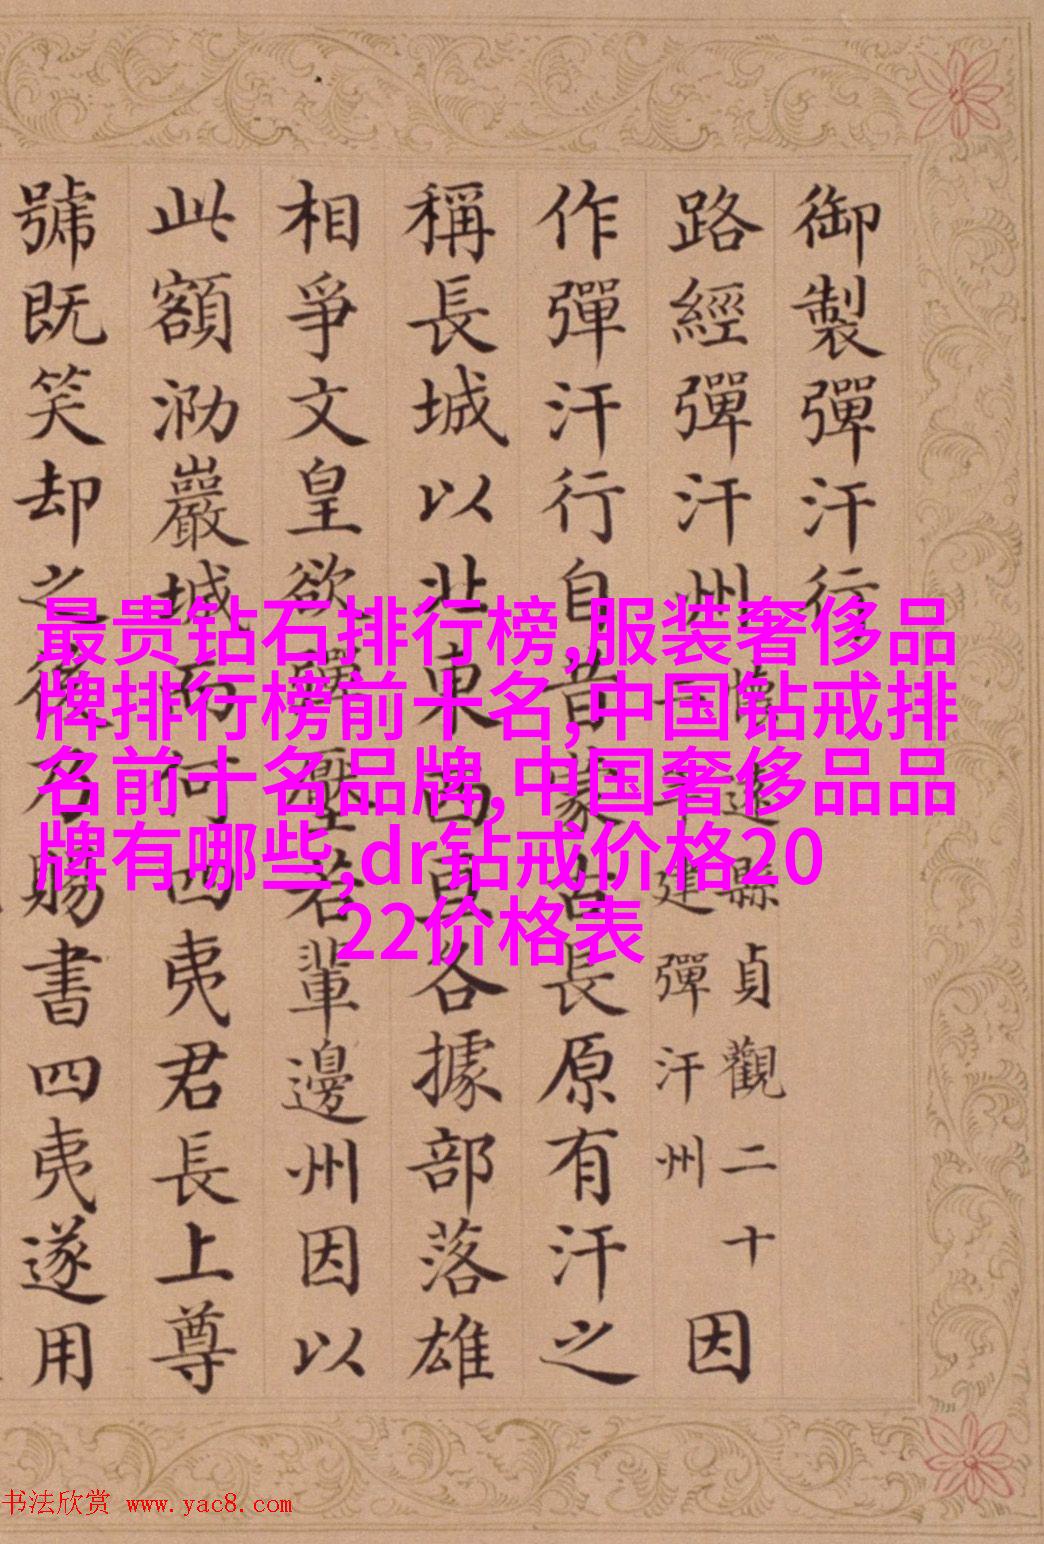 御製彈汗行
路經彈汗州
懷遠縣貞觀二十
一年建彈汗州
因
作彈汗行自昔蒙古長原有汗之
稱長城以北東西各據部落雄
相爭文皇欲壓若輩邊州因以
此額泐巖城而何四夷君長上尊
號既笑却之後乃賜書四夷遂用
最贵钻石排行榜,服装奢侈品
牌排行榜前十名,中国钻戒排
名前十名品牌,中国奢侈品品
牌有哪些,dr钻戒价格20
22价格表
书法欣赏 www.yac8.com